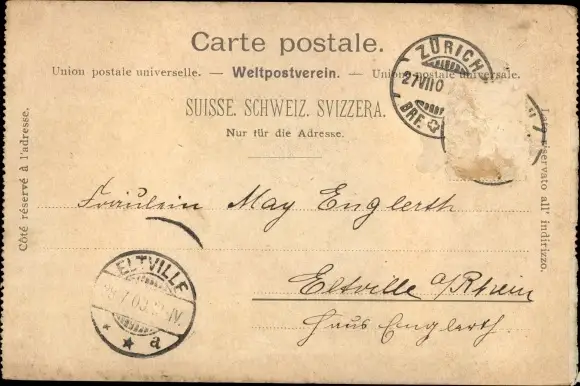 Carte postale.
Union postale universelle. — Weltpostverein. — Union postale universale.
SUISSE. SCHWEIZ. SVIZZERA.
Nur für die Adresse.
Côté réservé à l'adresse.
Lato riservato all' indirizzo.
ZÜRICH
27 VII 0
BRF.
Fräulein May Englerth
Eltville a/Rhein
Haus Englerth.
ELTVILLE
a